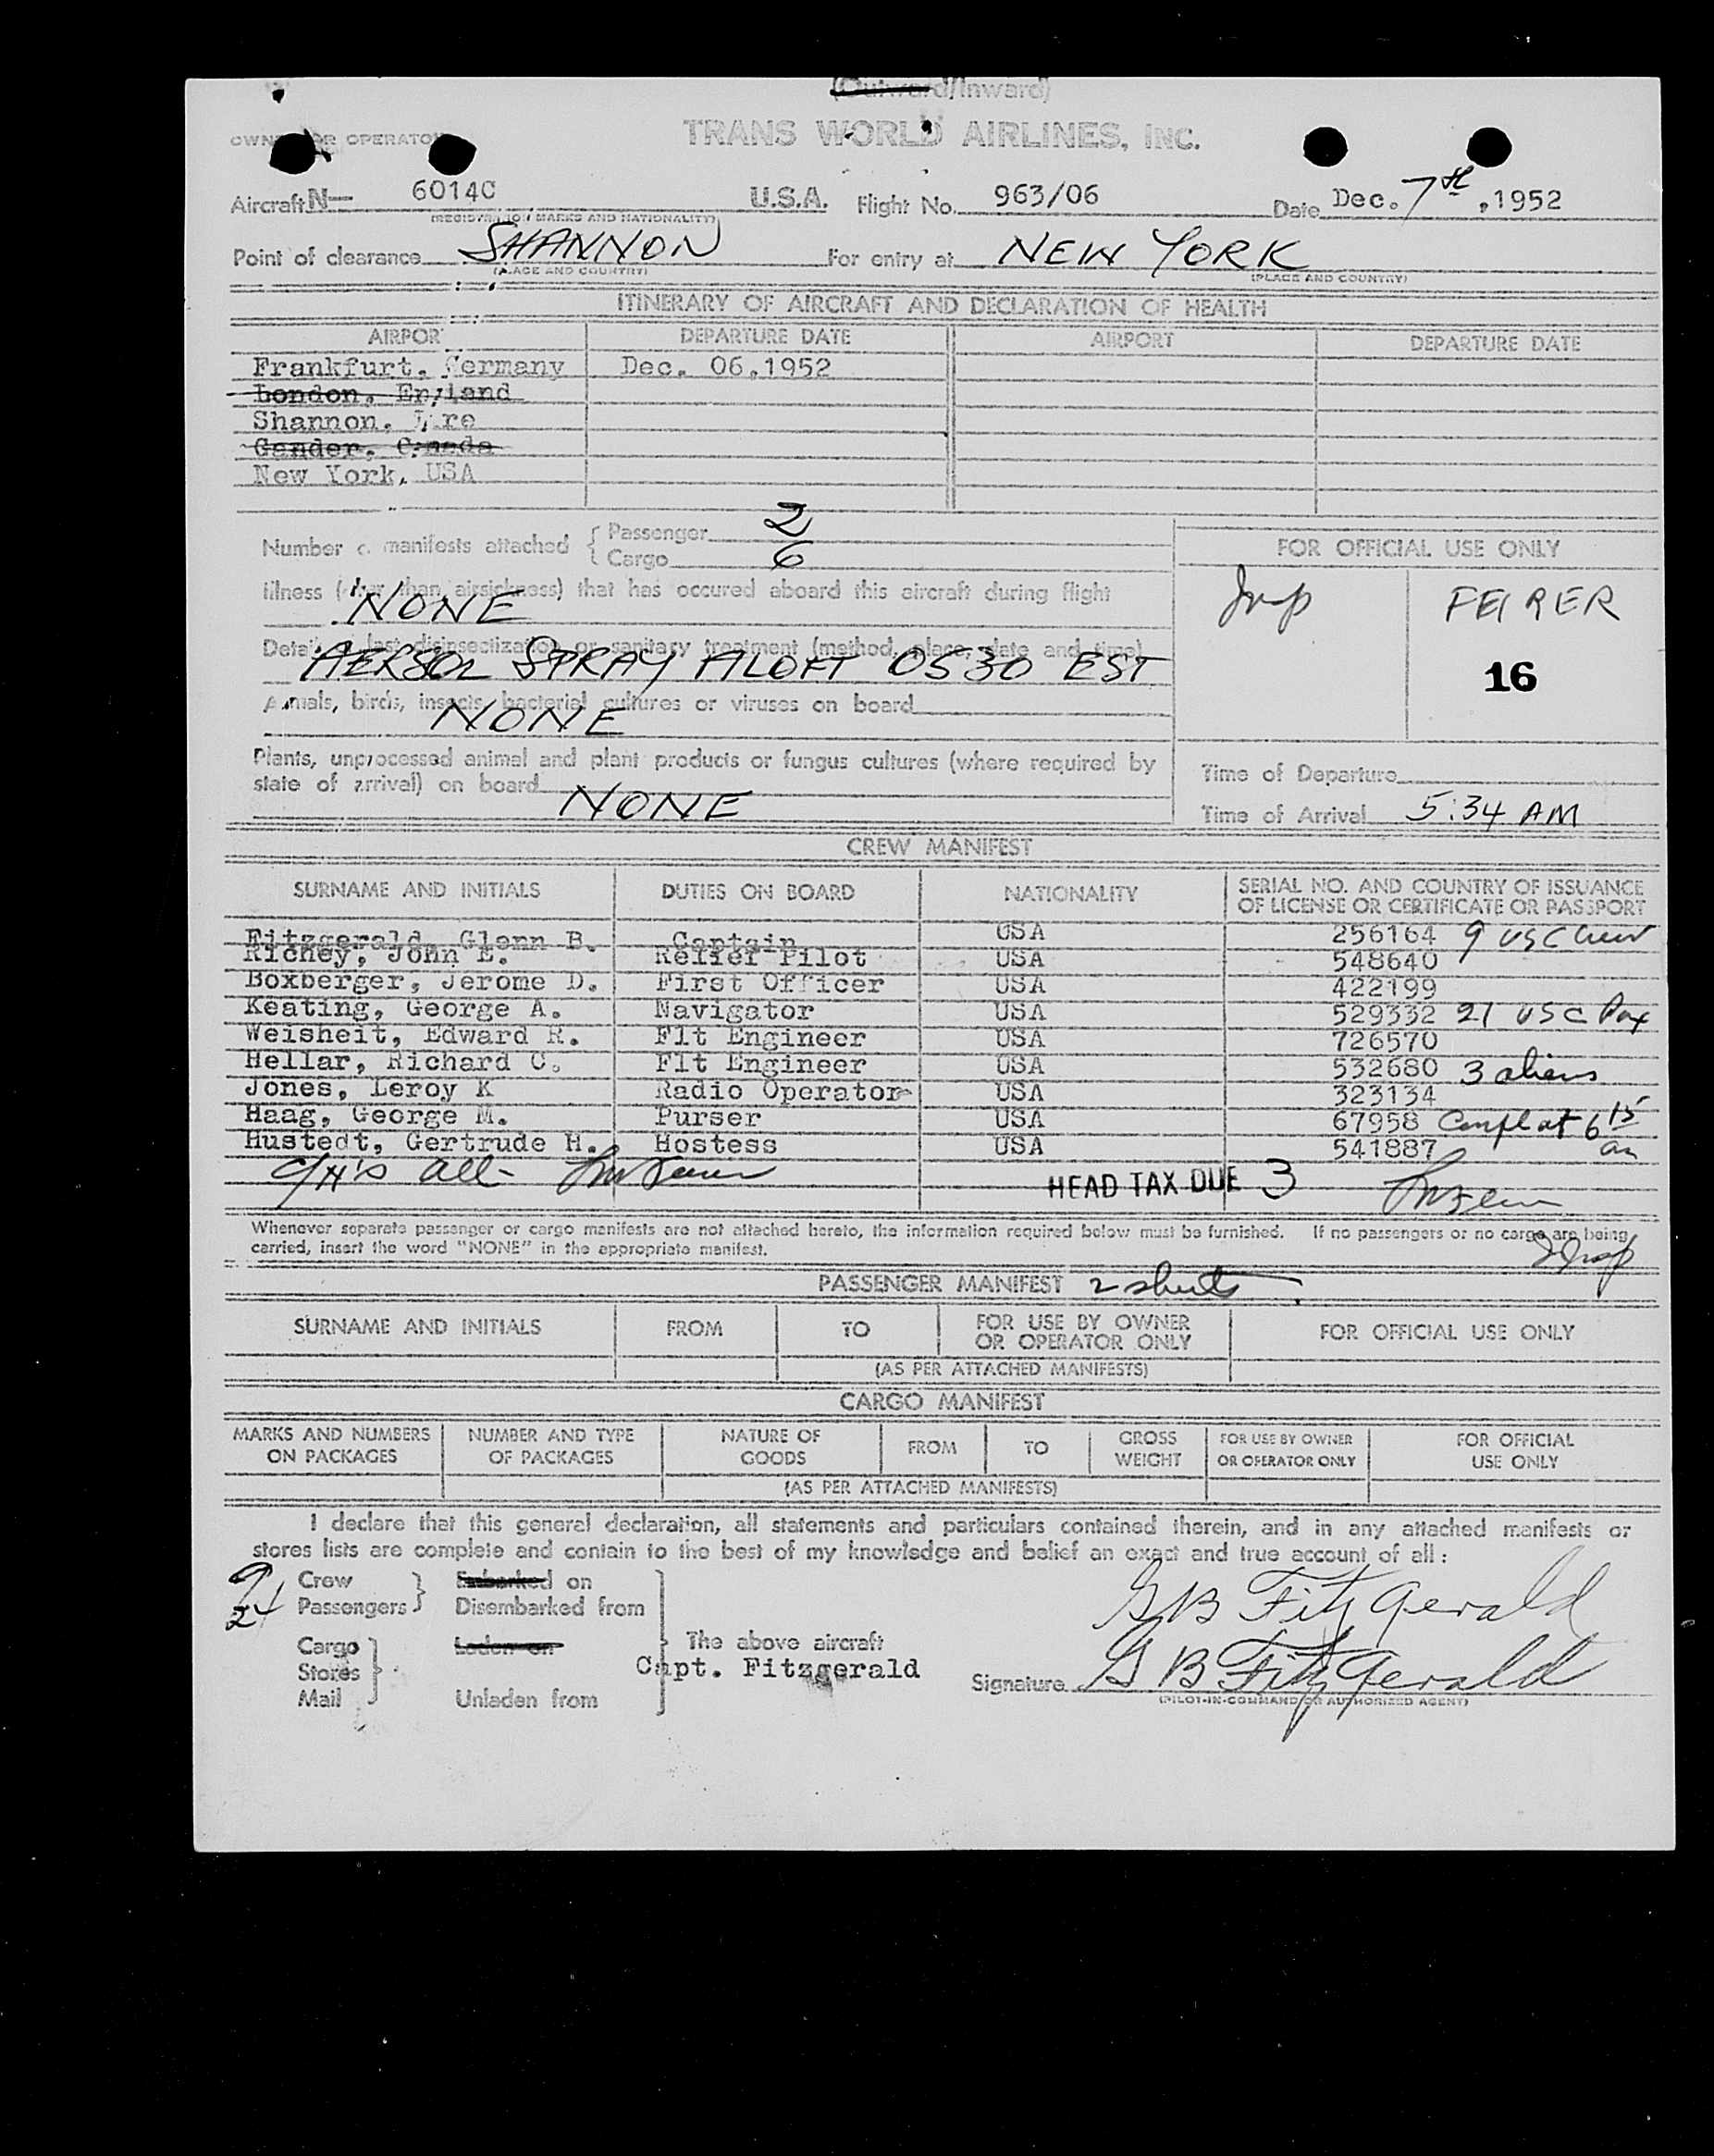 (Outward/Inward)
OWNER OR OPERATOR TRANS WORLD AIRLINES, INC.
Aircraft N— 6014C U.S.A. Flight No. 963/06 Date Dec. 7th, 1952
(REGISTRATION MARKS AND NATIONALITY)
Point of clearance SHANNON For entry at NEW YORK
(PLACE AND COUNTRY) (PLACE AND COUNTRY)
ITINERARY OF AIRCRAFT AND DECLARATION OF HEALTH
AIRPORT DEPARTURE DATE AIRPORT DEPARTURE DATE
Frankfurt, Germany Dec. 06,1952
London, England
Shannon, Eire
Gander, Canada
New York, USA
Number of manifests attached { Passenger 2
Cargo 6
FOR OFFICIAL USE ONLY
Illness (other than airsickness) that has occured aboard this aircraft during flight
NONE
Insp FEIRER
16
Details of last disinsectization or sanitary treatment (method, place, date and time)
AERSOL SPRAY ALOFT 0530 EST
Animals, birds, insects, bacterial cultures or viruses on board
NONE
Plants, unprocessed animal and plant products or fungus cultures (where required by
state of arrival) on board NONE
Time of Departure
Time of Arrival 5:34 AM
CREW MANIFEST
SURNAME AND INITIALS DUTIES ON BOARD NATIONALITY SERIAL NO. AND COUNTRY OF ISSUANCE
OF LICENSE OR CERTIFICATE OR PASSPORT
Fitzgerald, Glenn B. Captain USA 256164 9 USC Crew
Richey, John E. Relief Pilot USA 548640
Boxberger, Jerome D. First Officer USA 422199
Keating, George A. Navigator USA 529332 21 USC Pax
Weisheit, Edward R. Flt Engineer USA 726570
Hellar, Richard C. Flt Engineer USA 532680 3 aliens
Jones, Leroy K Radio Operator USA 323134
Haag, George M. Purser USA 67958 Compl at 6 15
Hustedt, Gertrude H. Hostess USA 541887 am
C/H's all
HEAD TAX DUE 3
Whenever separate passenger or cargo manifests are not attached hereto, the information required below must be furnished. If no passengers or no cargo are being
carried, insert the word "NONE" in the appropriate manifest.
Insp
PASSENGER MANIFEST 2 sheets
SURNAME AND INITIALS FROM TO FOR USE BY OWNER
OR OPERATOR ONLY FOR OFFICIAL USE ONLY
(AS PER ATTACHED MANIFESTS)
CARGO MANIFEST
MARKS AND NUMBERS
ON PACKAGES NUMBER AND TYPE
OF PACKAGES NATURE OF
GOODS FROM TO GROSS
WEIGHT FOR USE BY OWNER
OR OPERATOR ONLY FOR OFFICIAL
USE ONLY
(AS PER ATTACHED MANIFESTS)
I declare that this general declaration, all statements and particulars contained therein, and in any attached manifests or
stores lists are complete and contain to the best of my knowledge and belief an exact and true account of all:
9 Crew Embarked on
24 Passengers Disembarked from
G B FitzGerald
Cargo Laden on The above aircraft
Stores Capt. Fitzgerald Signature G B FitzGerald
Mail Unladen from (PILOT-IN-COMMAND OR AUTHORIZED AGENT)